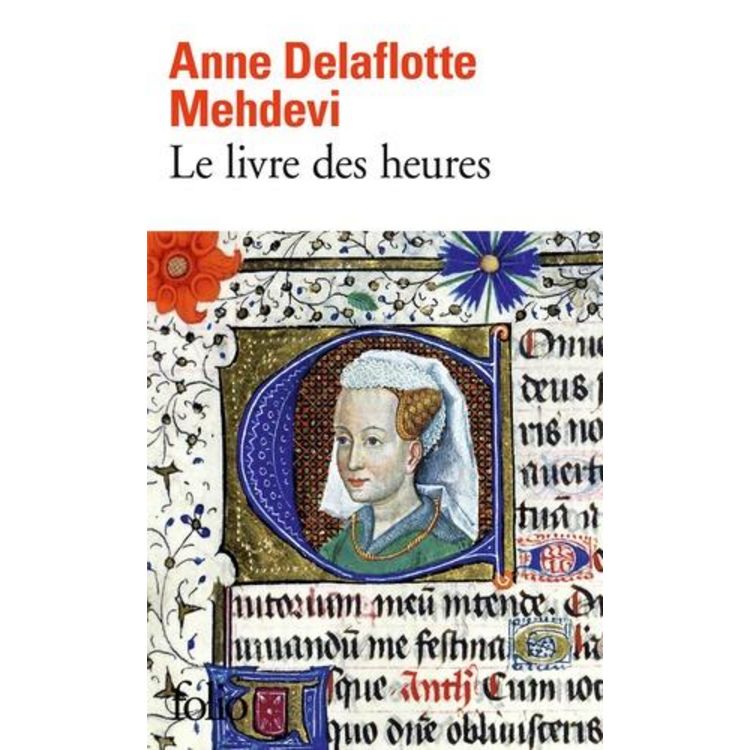 Anne Delaflotte
Mehdevi
Le livre des heures
Omne
deus
ris no
nuert
tuā n
iutorium meū intende. D
umandū me festina.
sque Antɧ Cum ioc
quo dn̄e obliuisceris
folio